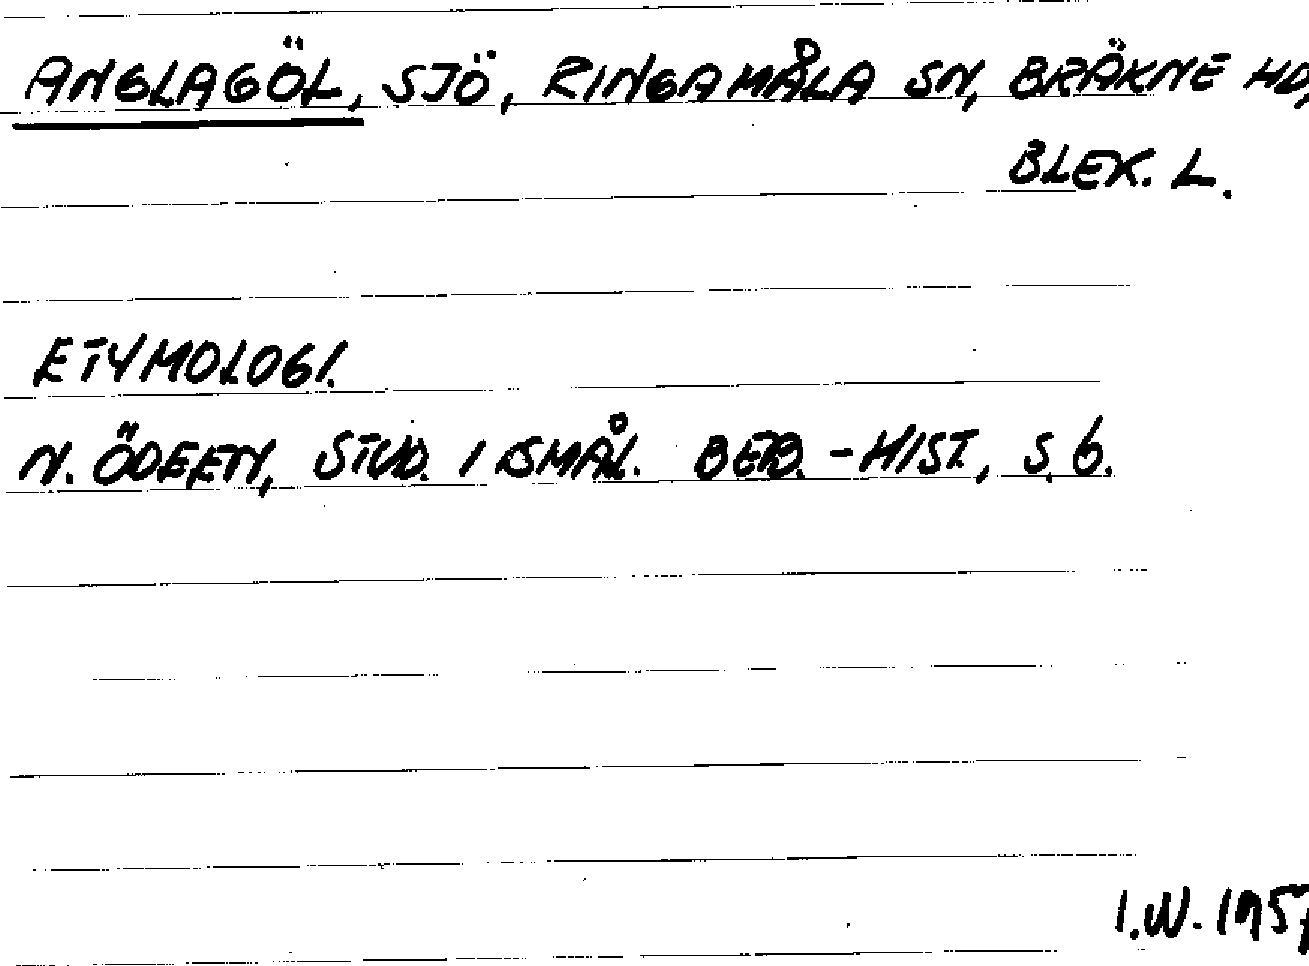 ANGLAGÖL, SJÖ, RINGAMÅLA SN, BRÄKNE HD,
BLEK. L.
ETYMOLOGI.
N. ÖDEEN, STUD. I SMÅL. BEB.-HIST., S. 6.
I.W.